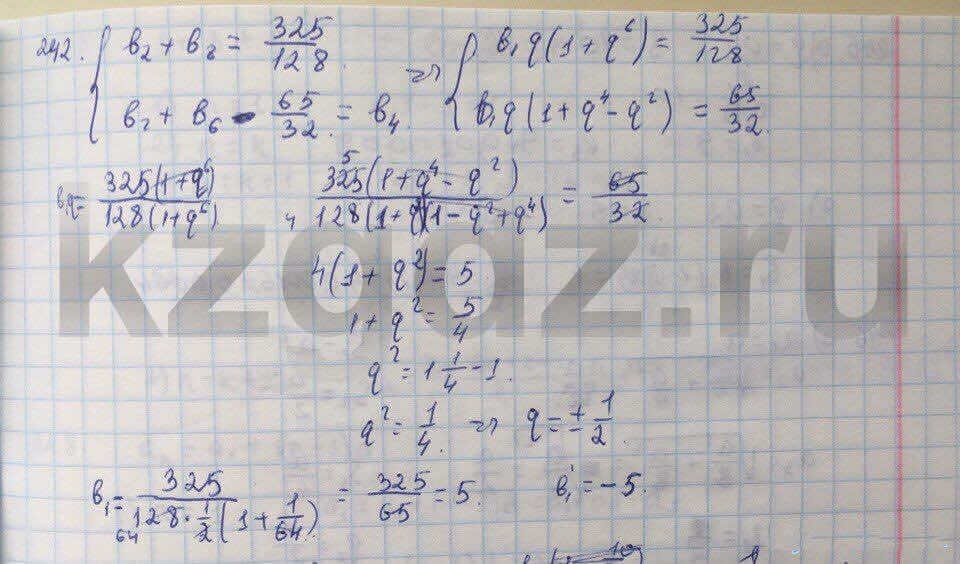 242. { b₂ + b₈ = 325/128 ⇒ { b₁q(1 + q⁶) = 325/128
b₂ + b₆ - 65/32 = b₄. b₁q(1 + q⁴ - q²) = 65/32.
b₁q = 325(1+q⁶)/128(1+q⁶) 5 325(1+q⁴ - q²)/4 128(1+q²)(1-q²+q⁴) = 65/32
4(1 + q²) = 5
1 + q² = 5/4
q² = 1 1/4 - 1.
q² = 1/4. ⇒ q = ± 1/2.
b₁ = 325/128 · 1/2 (1 + 1/64) = 325/65 = 5. b₁' = -5.
64
kzgdz.ru